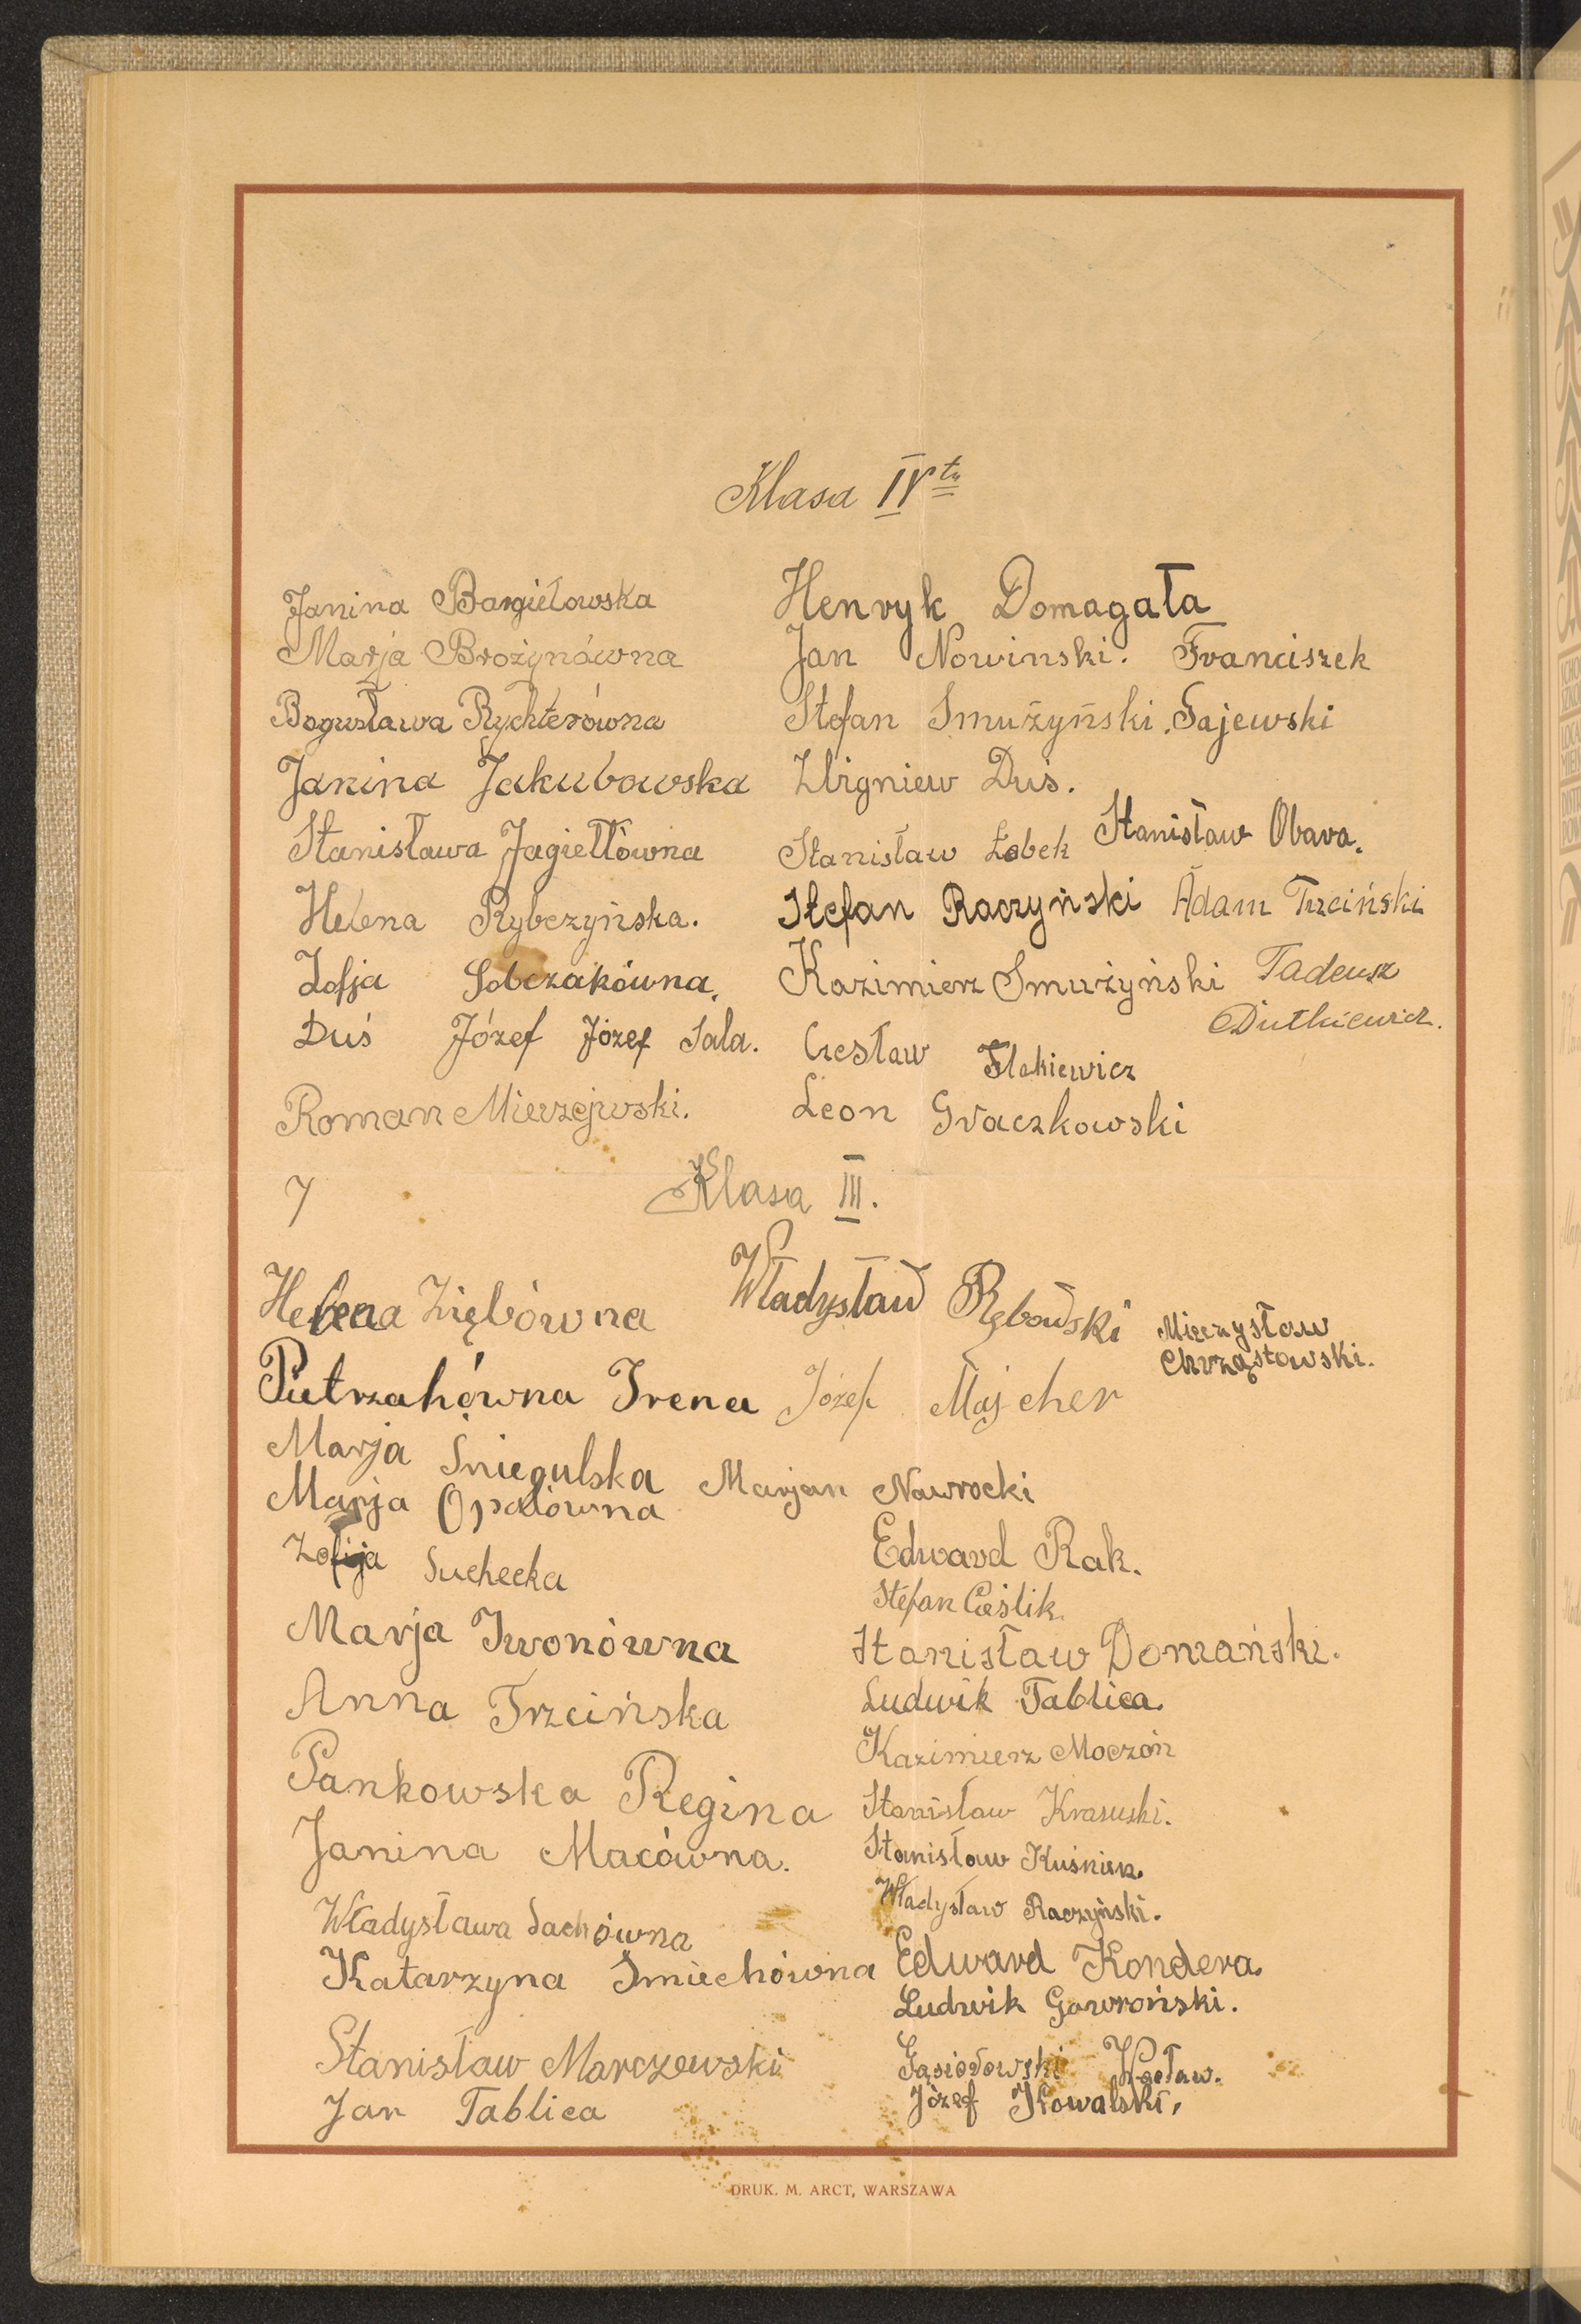 Klasa IV ta
Janina Bargiełowska
Marja Brożynówna
Bogusława Rychterówna
Janina Jakubowska
Stanisława Jagiełłówna
Helena Rybczyńska.
Zofja Sobczakówna.
Duś Józef Józef Sala.
Roman Mierzejwski.
Henryk Domagała
Jan Nowinski. Franciszek
Stefan Smużyński. Gajewski
Zbigniew Duś.
Stanisław Łobek Stanisław Obara.
Stefan Raczyński Adam Trzciński
Kazimierz Smużyński Tadeusz
Dutkiewicz.
Czesław Flakiewicz
Leon Graczkowski
7 Klasa III.
Helena Ziębówna
Pietrzakówna Irena
Marja Śniegulska
Marja Opalówna
Zofija Suchecka
Marja Iwonówna
Anna Trzcińska
Pankowska Regina
Janina Macówna.
Władysława Sachówna
Katarzyna Śmiechówna
Stanisław Marczewski
Jan Tablica
Władysław Rębowski
Mieczysław
Chrząstowski.
Józef Majcher
Marjan Nawrocki
Edward Rak.
Stefan Cieślik.
Stanisław Domański.
Ludwik Tablica.
Kazimierz Moczoń
Stanisław Krasuski.
Stanisław Kuśnierz.
Władysław Raczyński.
Edward Kondera.
Ludwik Gawroński.
Gąsiorowski Wacław.
Józef Kowalski.
DRUK. M. ARCT, WARSZAWA